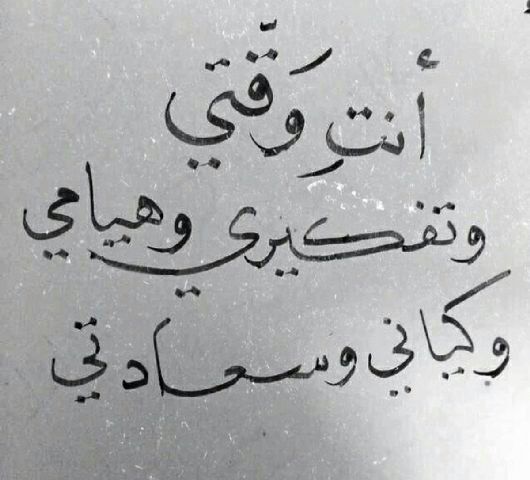 أنتِ وَقّتي
وتفكيري وهيامي
وكياني وسعادتي